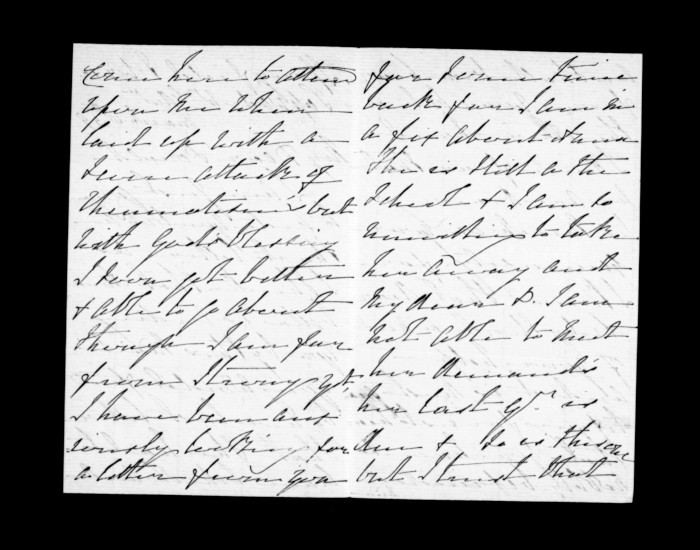 come here to attend
upon me when
laid up with a
severe attack of
rheumatism but
with Gods blessing
I soon got better
& able to go about
though I am far
from strong yet
I have been anx
iously looking for
a letter from you
for some time
back for I am in
a fix about
She is still at the
School & I am so
unwilling to take
her away and
My dear D. I am
not able to meet
her demands
her last qr. is
due & so is this one
but I trust that